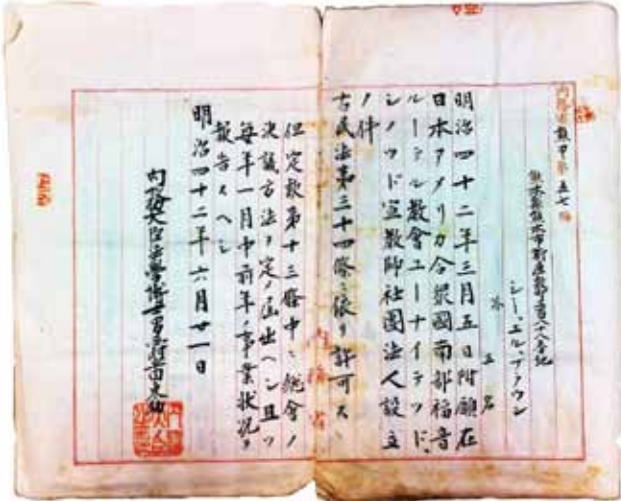 内務省熊甲第五七号
熊本県熊本市新屋敷町四百八十八番地
シー、エル、ブラウン
外五名
明治四十二年三月五日附願在
日本アメリカ合衆國南部福音
ルーテル教會ユーナイテッド、
シノッド宣教師社團法人設立
ノ件
右民法第三十四條ニ依リ許可ス
但定款第十三條中ニ總會ノ
決議方法ヲ定ノ届出ヘシ且ツ
毎年一月中前年ノ事業状況ヲ
報告スヘシ
明治四十二年六月廿一日
内務大臣法學博士男爵平田東助
内務省